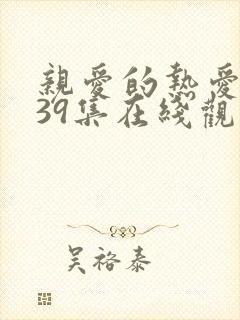 親愛的熱愛
39集在綫觀
吴裕泰